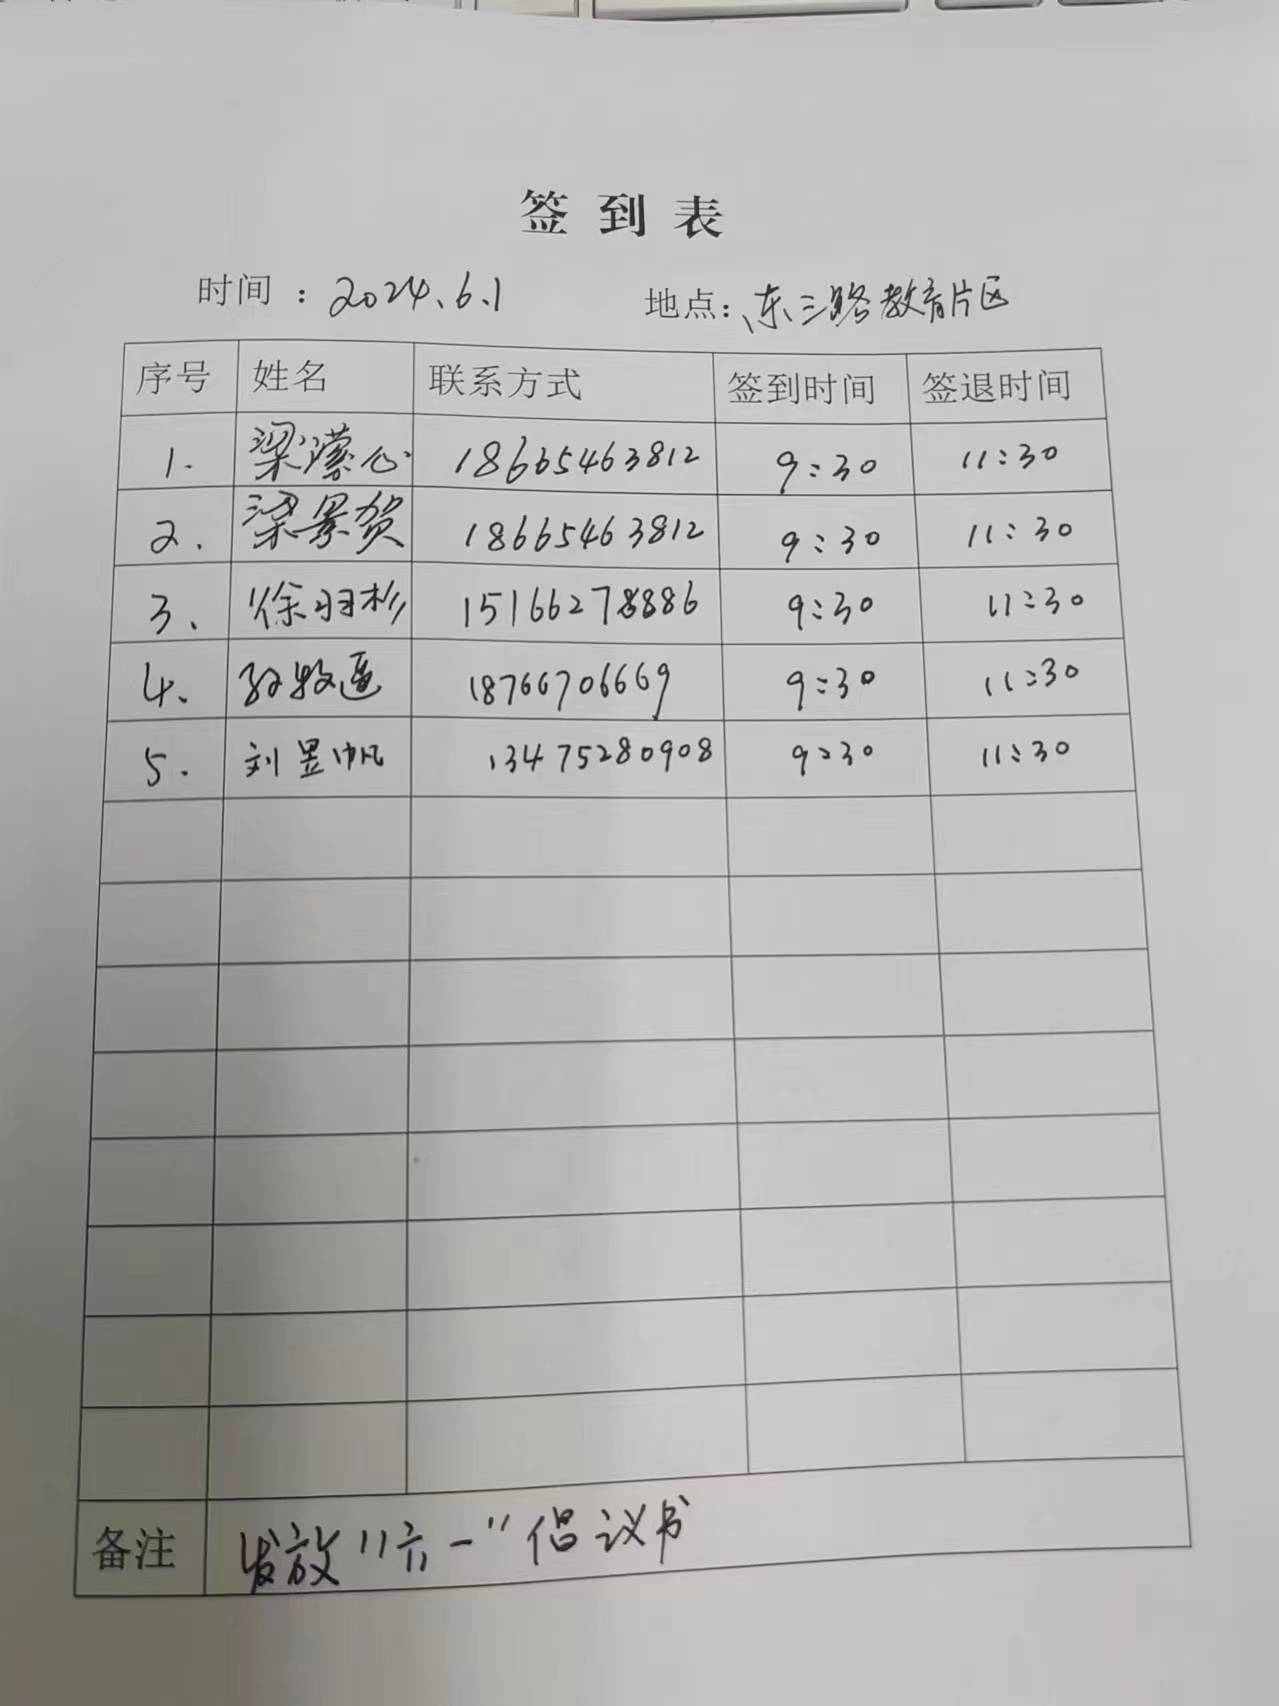 签到表
时间：2024.6.1 地点：东三路教育片区
序号 姓名 联系方式 签到时间 签退时间
1. 梁潆心 18665463812 9:30 11:30
2. 梁景贺 18665463812 9:30 11:30
3. 徐羽杉 15166278886 9:30 11:30
4. 孙牧 18766706669 9:30 11:30
5. 刘昱帆 13475280908 9:30 11:30
备注 发放"六一"倡议书